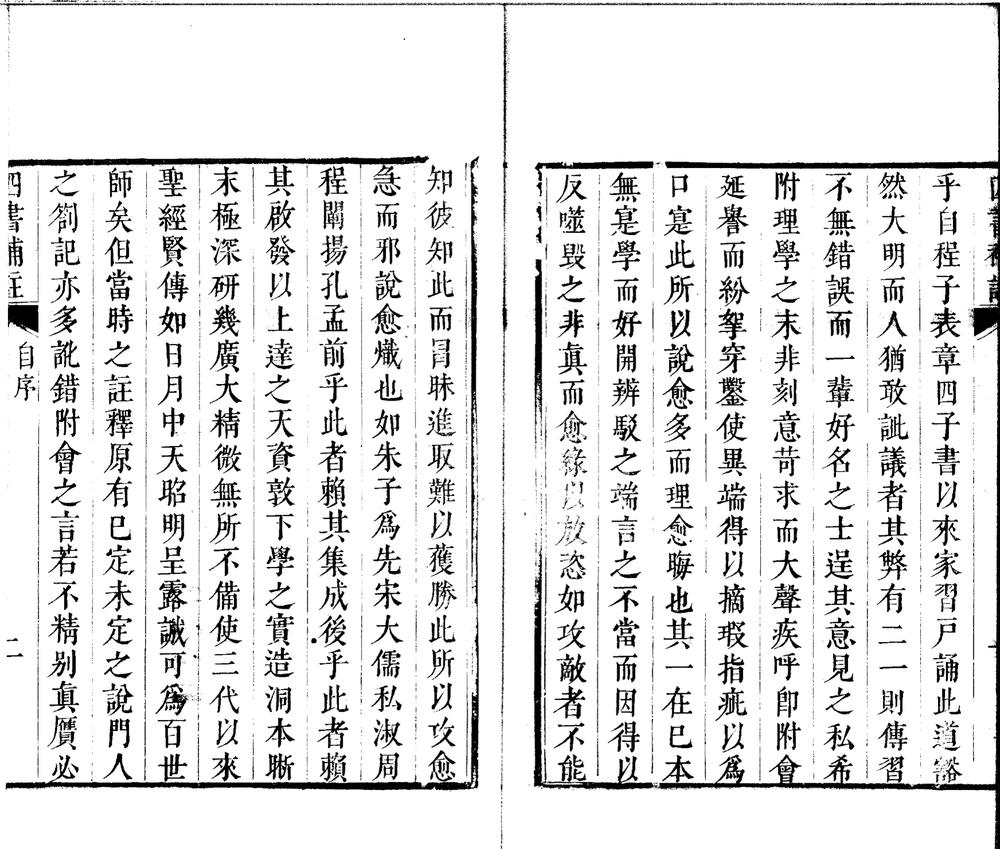 乎自程子表章四子書以來家習戸誦此道豁
然大明而人猶敢訿議者其弊有二一則傳習
不無錯誤而一輩好名之士逞其意見之私希
附理學之末非刻意苛求而大聲疾呼卽附會
延譽而紛挐穿鑿使異端得以摘瑕指疵以爲
口寔此所以說愈多而理愈晦也其一在已本
無寔學而好開辨駁之端言之不當而因得以
反噬毀之非眞而愈緣以放恣如攻敵者不能
知彼知此而冒昧進取難以獲勝此所以攻愈
急而邪說愈熾也如朱子爲先宋大儒私淑周
程闡揚孔孟前乎此者賴其集成後乎此者賴
其啟發以上達之天資敦下學之實造洞本晰
末極深研幾廣大精微無所不備使三代以來
聖經賢傳如日月中天昭明呈露誠可爲百世
師矣但當時之註釋原有已定未定之說門人
之劄記亦多訛錯附會之言若不精别眞贋必
四書補註
自序
二